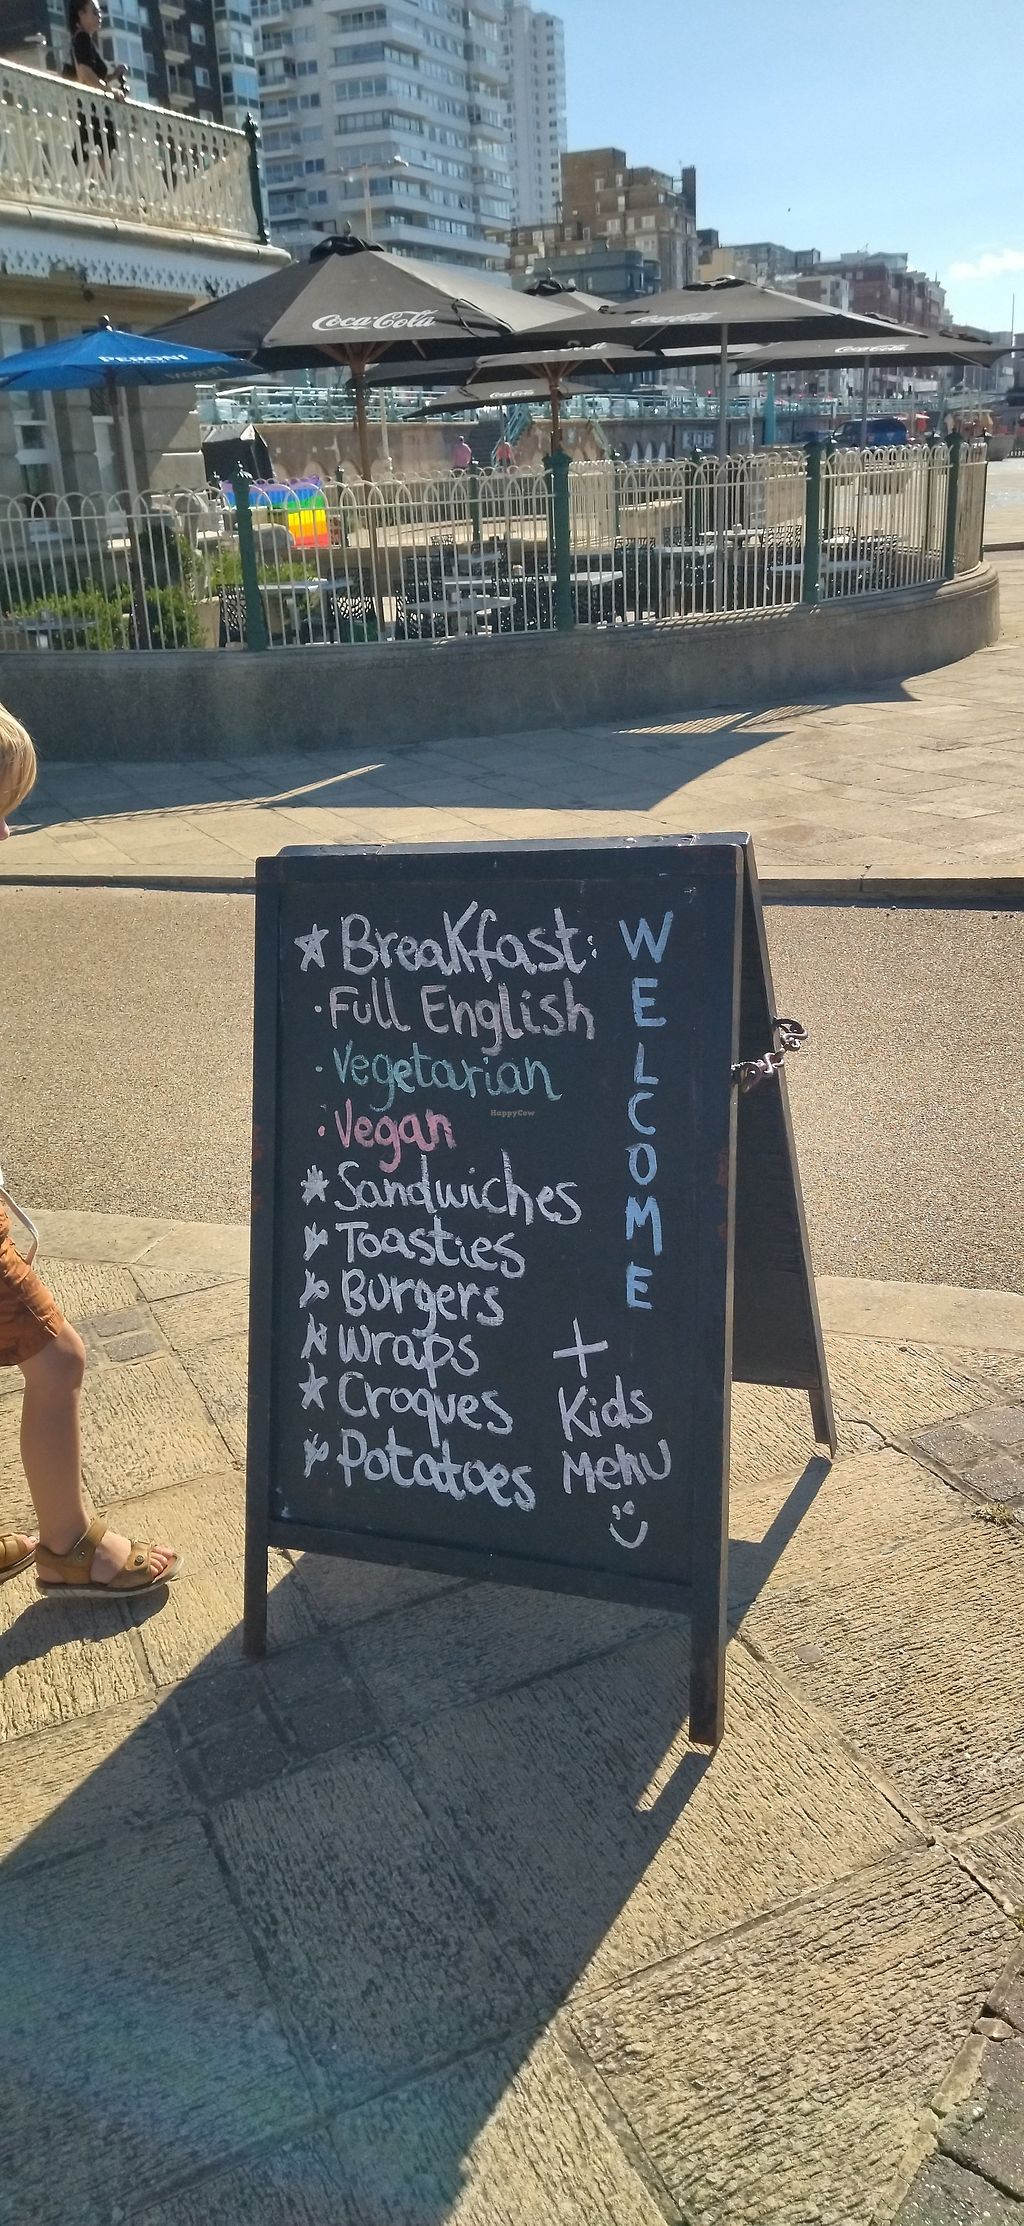 Coca-Cola
Coca-Cola
Coca-Cola
PERONI
Breakfast:
· Full English
· Vegetarian
· Vegan
Sandwiches
Toasties
Burgers
Wraps
Croques
Potatoes
WELCOME
+
Kids
Menu
HappyCow